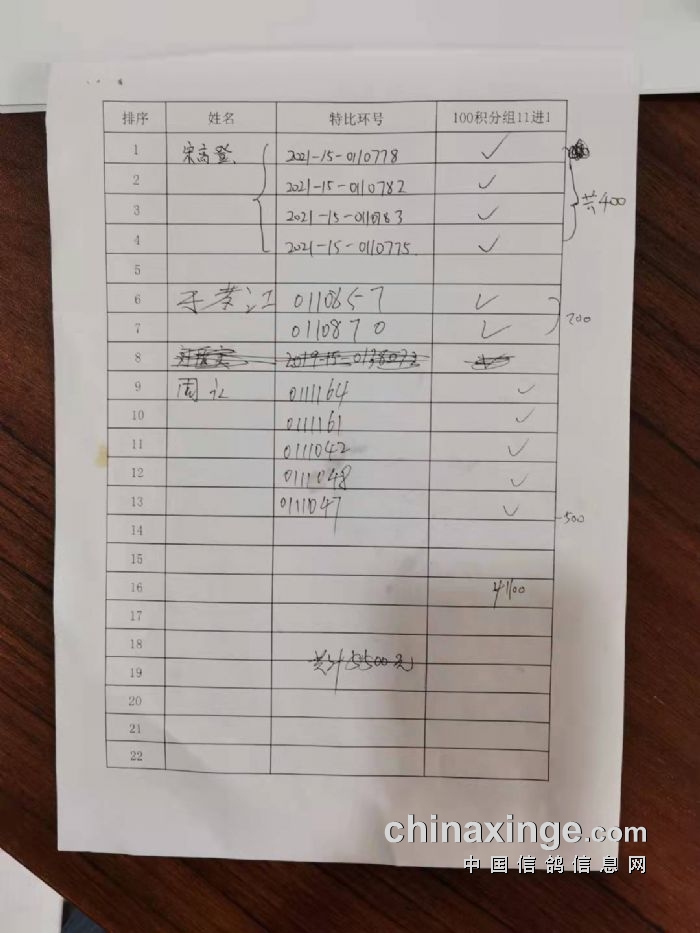 排序 姓名 特比环号 100积分组11进1
1 宋高登 2021-15-0110778 ✓
2 2021-15-0110782 ✓
3 2021-15-0110783 ✓ 共400
4 2021-15-0110775 ✓
5
6 于孝江 0110857 ✓
7 0110870 ✓ 200
8
9 周 0111164 ✓
10 0111161 ✓
11 0111042 ✓
12 0111048 ✓
13 0111047 ✓
500
14
15
16 1100
17
18
共计5500元
19
20
21
22
chinaxinge.com
中国信鸽信息网